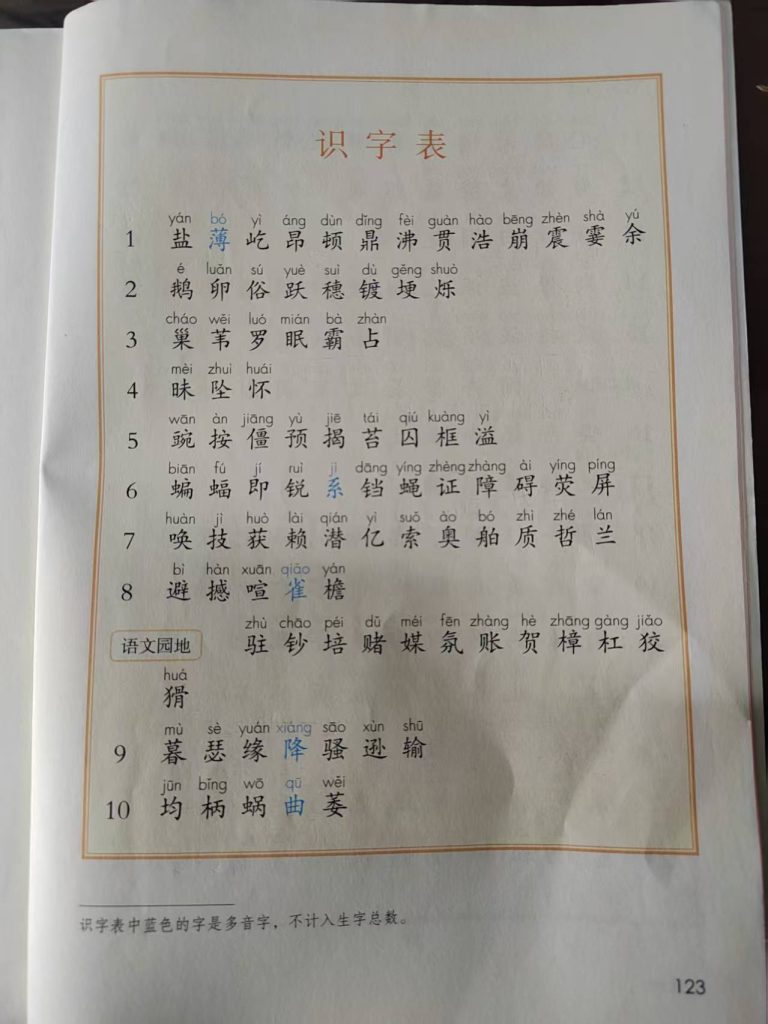 识字表
yán bó yì áng dùn dǐng fèi guàn hào bēng zhèn shà yú
1 盐 薄 屹 昂 顿 鼎 沸 贯 浩 崩 震 霎 余
é luǎn sú yuè suì dù gěng shuò
2 鹅 卵 俗 跃 穗 镀 埂 烁
cháo wěi luó mián bà zhàn
3 巢 苇 罗 眠 霸 占
mèi zhuì huái
4 昧 坠 怀
wān àn jiāng yù jiē tái qiú kuàng yì
5 豌 按 僵 预 揭 苔 囚 框 溢
biān fú jí ruì jì dāng yíng zhèng zhàng ài yíng píng
6 蝙 蝠 即 锐 系 铛 蝇 证 障 碍 荧 屏
huàn jì huò lài qián yì suǒ ào bó zhì zhé lán
7 唤 技 获 赖 潜 亿 索 奥 舶 质 哲 兰
bì hàn xuān qiǎo yán
8 避 撼 喧 雀 檐
zhù chāo péi dǔ méi fēn zhàng hè zhāng gàng jiǎo
语文园地 驻 钞 培 赌 媒 氛 账 贺 樟 杠 狡
huá
猾
mù sè yuán xiáng sāo xùn shū
9 暮 瑟 缘 降 骚 逊 输
jūn bǐng wō qū wěi
10 均 柄 蜗 曲 萎
识字表中蓝色的字是多音字，不计入生字总数。
123